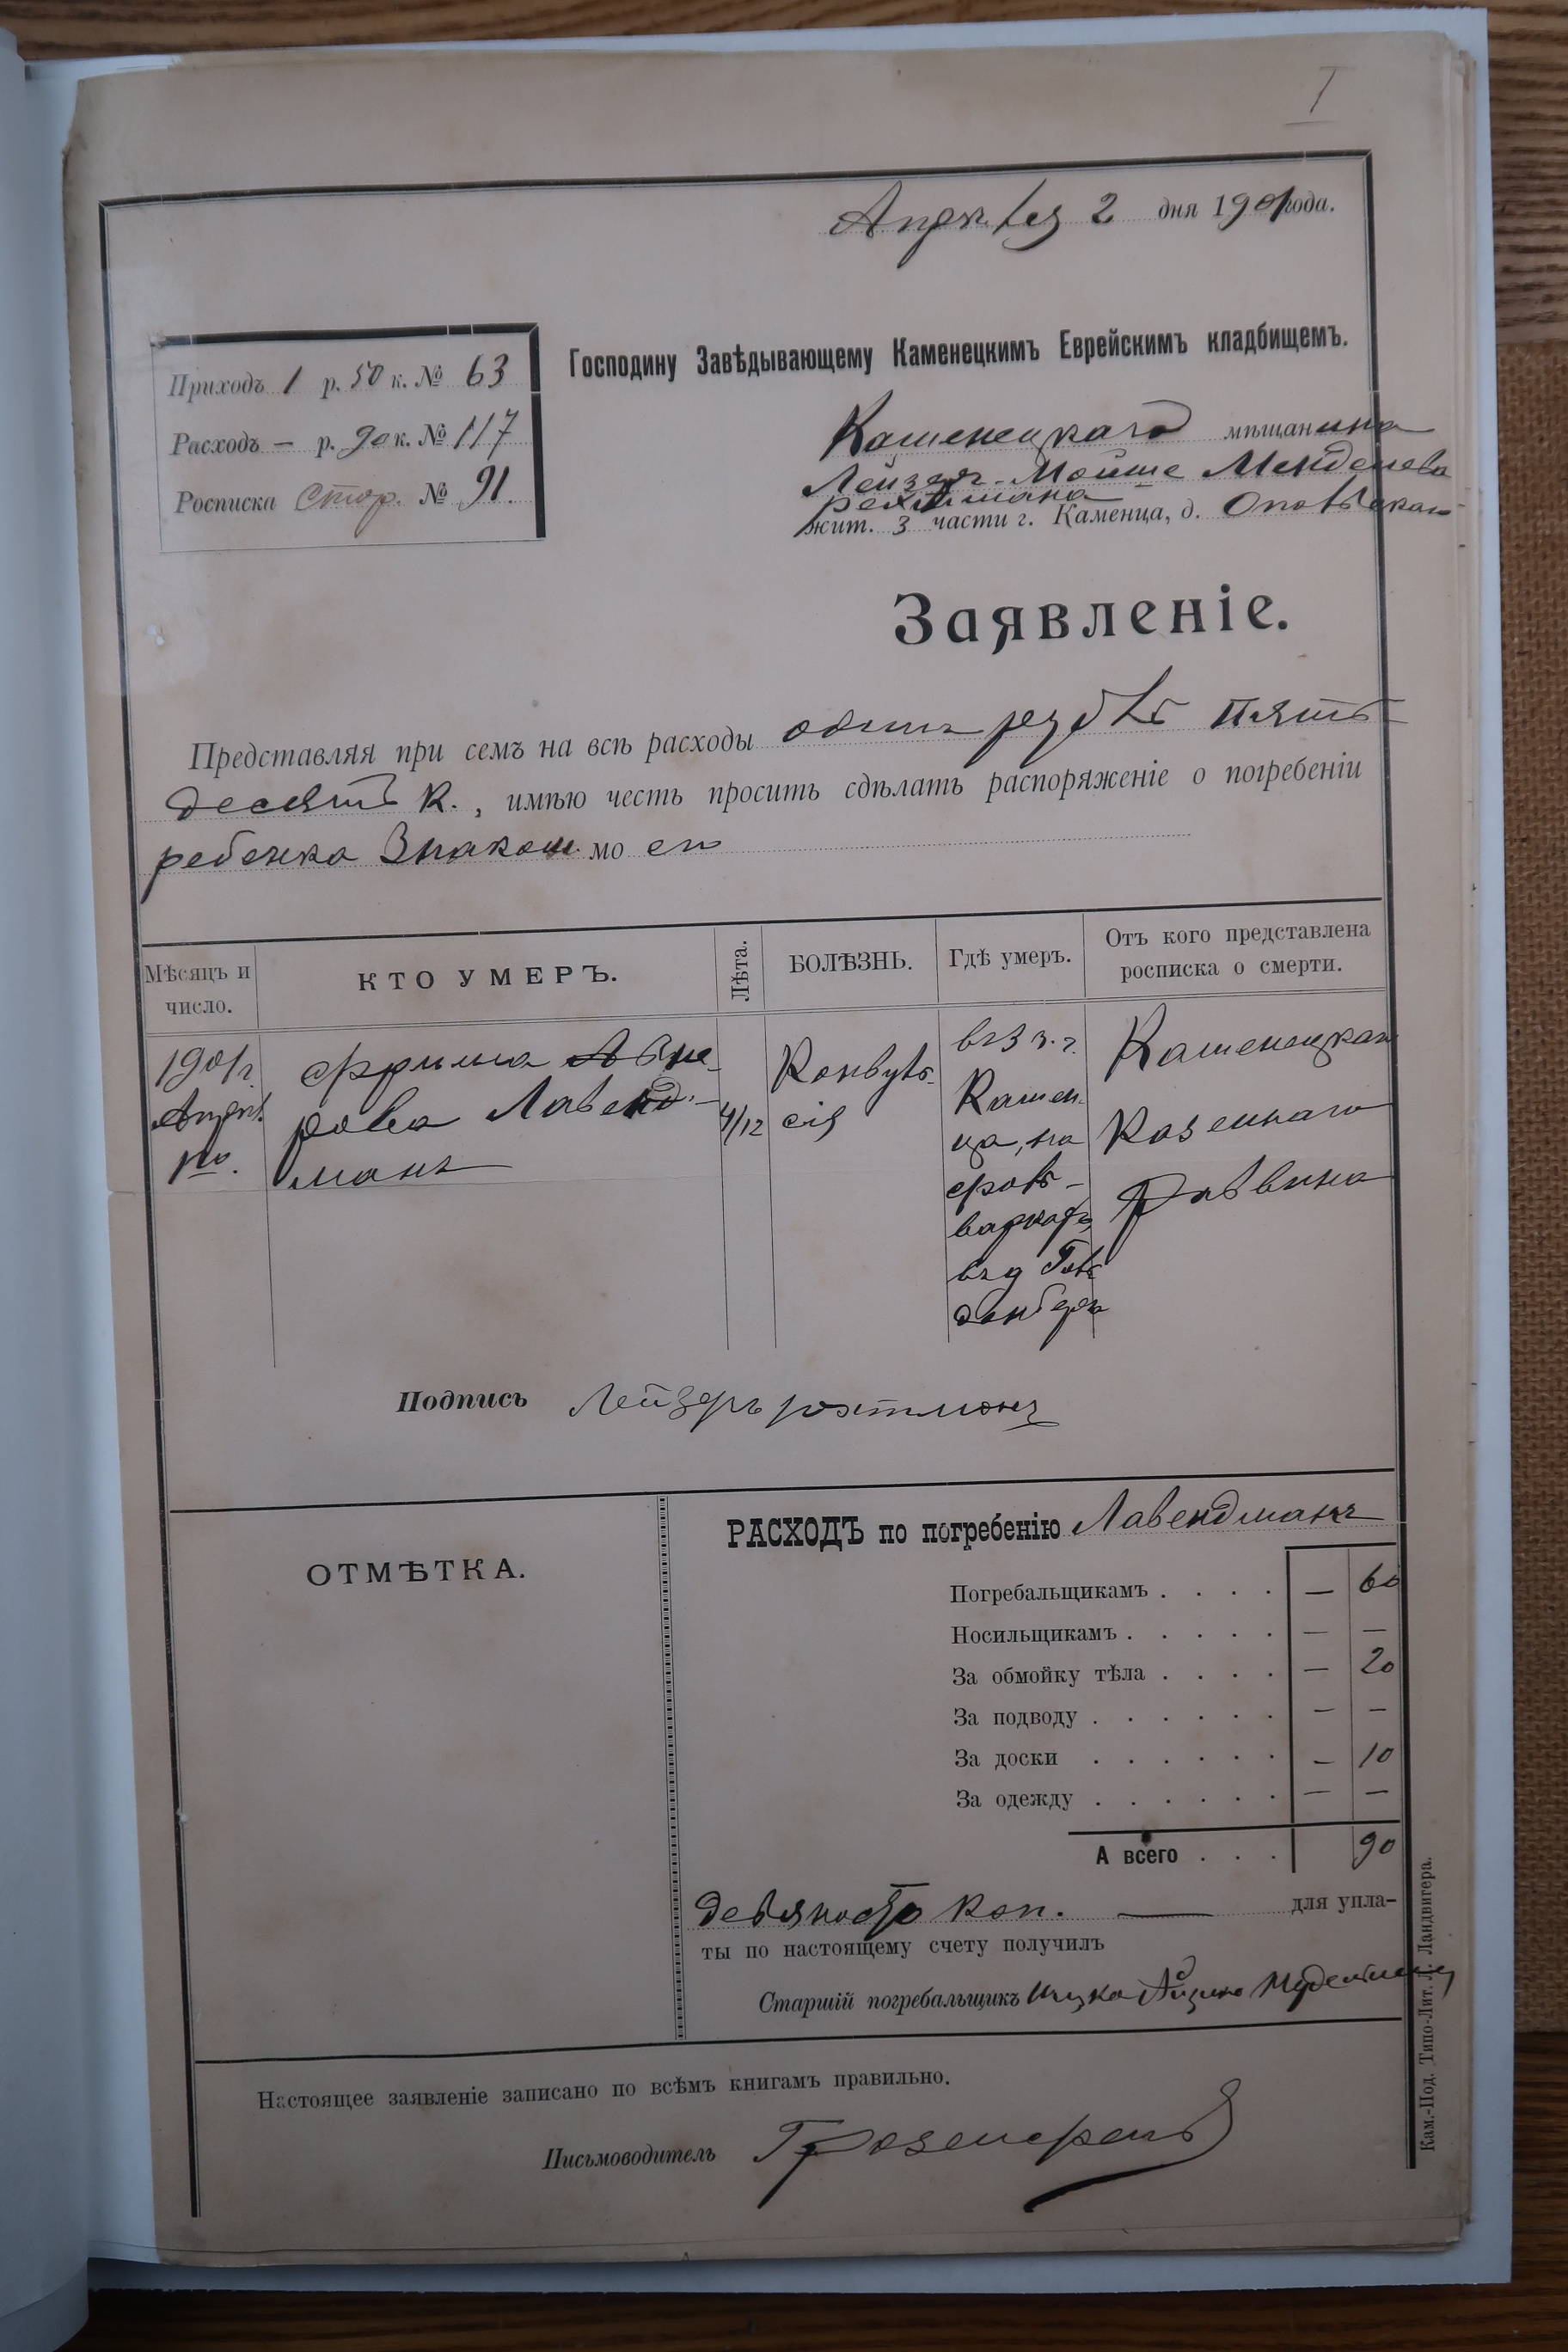 I
Апрѣля 2 дня 1901 года.
Приходъ 1 р. 50 к. № 63
Расходъ — р. 90 к. № 117
Росписка стор. № 91.
Господину Завѣдывающему Каменецкимъ Еврейскимъ кладбищемъ.
Каменецкаго мѣщанина
Лейзеръ-Мойше Менделева
жит. 3 части г. Каменца, д.
Заявленіе.
Представляя при семъ на всѣ расходы одинъ рубль пять-
десятъ к., имѣю честь просить сдѣлать распоряженіе о погребеніи
ребенка знаком. мо его
Мѣсяцъ и число.
КТО УМЕРЪ.
Лѣта.
БОЛѢЗНЬ.
Гдѣ умеръ.
Отъ кого представлена росписка о смерти.
1901 г.
Апрѣл.
1го.
Фрима
рова Лавенд-
манъ
4/12
Конвуль-
сія
въ 3 ч. г.
Камен-
ца, на
фоль-
варкахъ,
въ д. Голь
денберга
Каменецкаго
Казеннаго
Раввина
Подпись Лейзеръ рохтманъ
ОТМѢТКА.
РАСХОДЪ по погребенію Лавендманъ
Погребальщикамъ . . . . — 60
Носильщикамъ . . . . . — —
За обмойку тѣла . . . . — 20
За подводу . . . . . . — —
За доски . . . . . . — 10
За одежду . . . . . . — —
А всего . . . 90
девяносто коп. — для упла-
ты по настоящему счету получилъ
Старшій погребальщикъ Ицко
Настоящее заявленіе записано по всѣмъ книгамъ правильно.
Письмоводитель
Кам.-Под. Типо-Лит. Л. Ландвигера.